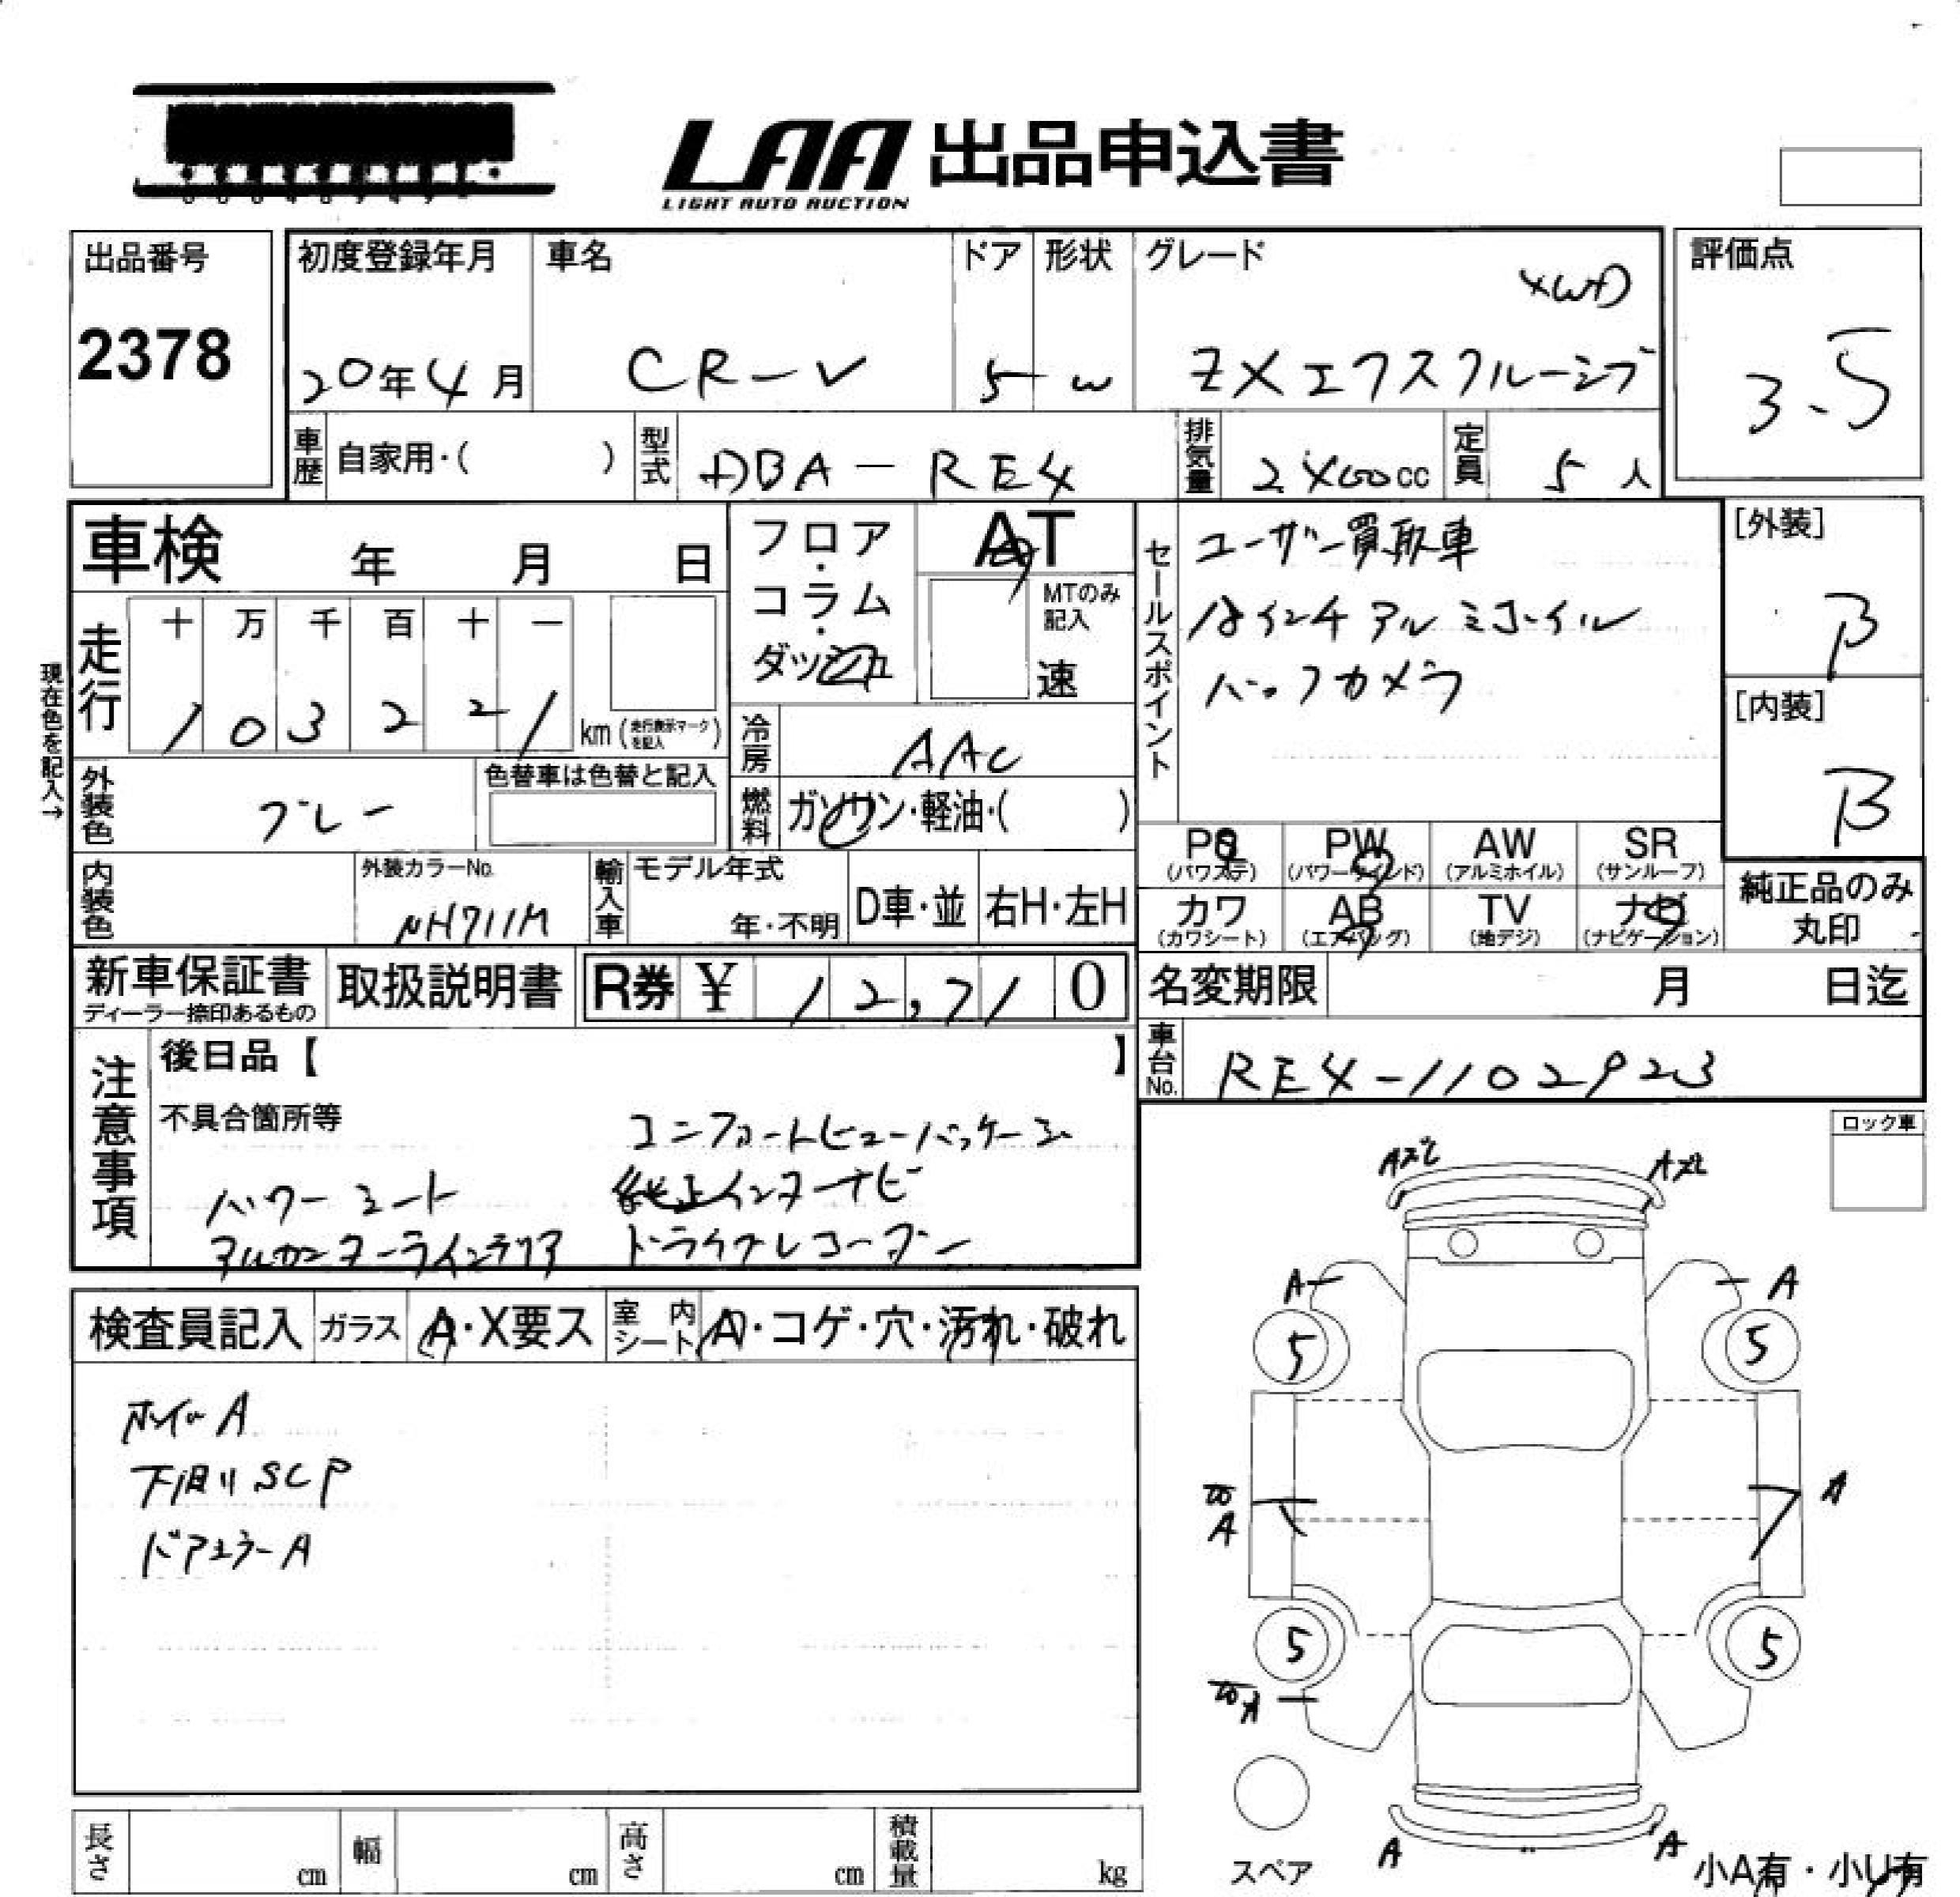 LAA 出品申込書
LIGHT AUTO AUCTION
出品番号
2378
初度登録年月
20年4月
車名
CR-V
ドア
5
形状
W
グレード
4WD
ZXエクスクルーシブ
評価点
3.5
車歴 自家用・( )
型式 DBA-RE4
排気量 2400cc
定員 5人
車検 年 月 日
フロア・コラム・ダッシュ
AT
MTのみ記入
速
セールスポイント
ユーザー買取車
18インチアルミホイル
バックカメラ
[外装]
B
[内装]
B
現在色を記入→
走行
十 万 千 百 十 一
1 0 3 2 2 1 km (走行表示マークを記入)
冷房 AAC
外装色 グレー
色替車は色替と記入
燃料 ガソリン・軽油・( )
内装色
外装カラーNo.
NH711M
輸入車
モデル年式
年・不明
D車・並
右H・左H
PS (パワステ)
PW (パワーウインド)
AW (アルミホイル)
SR (サンルーフ)
カワ (カワシート)
AB (エアバッグ)
TV (地デジ)
ナビ (ナビゲーション)
純正品のみ丸印
新車保証書
ディーラー捺印あるもの
取扱説明書
R券 ¥ 12,710
名変期限 月 日迄
車台No. RE4-1102923
注意事項
後日品【 】
不具合箇所等
コンフォートビューパッケージ
パワーシート 純正インターナビ
アルカンターラインテリア ドライブレコーダー
ロック車
検査員記入
ガラス A・X要ス
室内シート A・コゲ・穴・汚れ・破れ
ホイルA
下廻りSCP
ドアミラーA
A A
5 5
A A
5 5
A
A A
スペア
小A有・小U有
長さ cm
幅 cm
高さ cm
積載量 kg